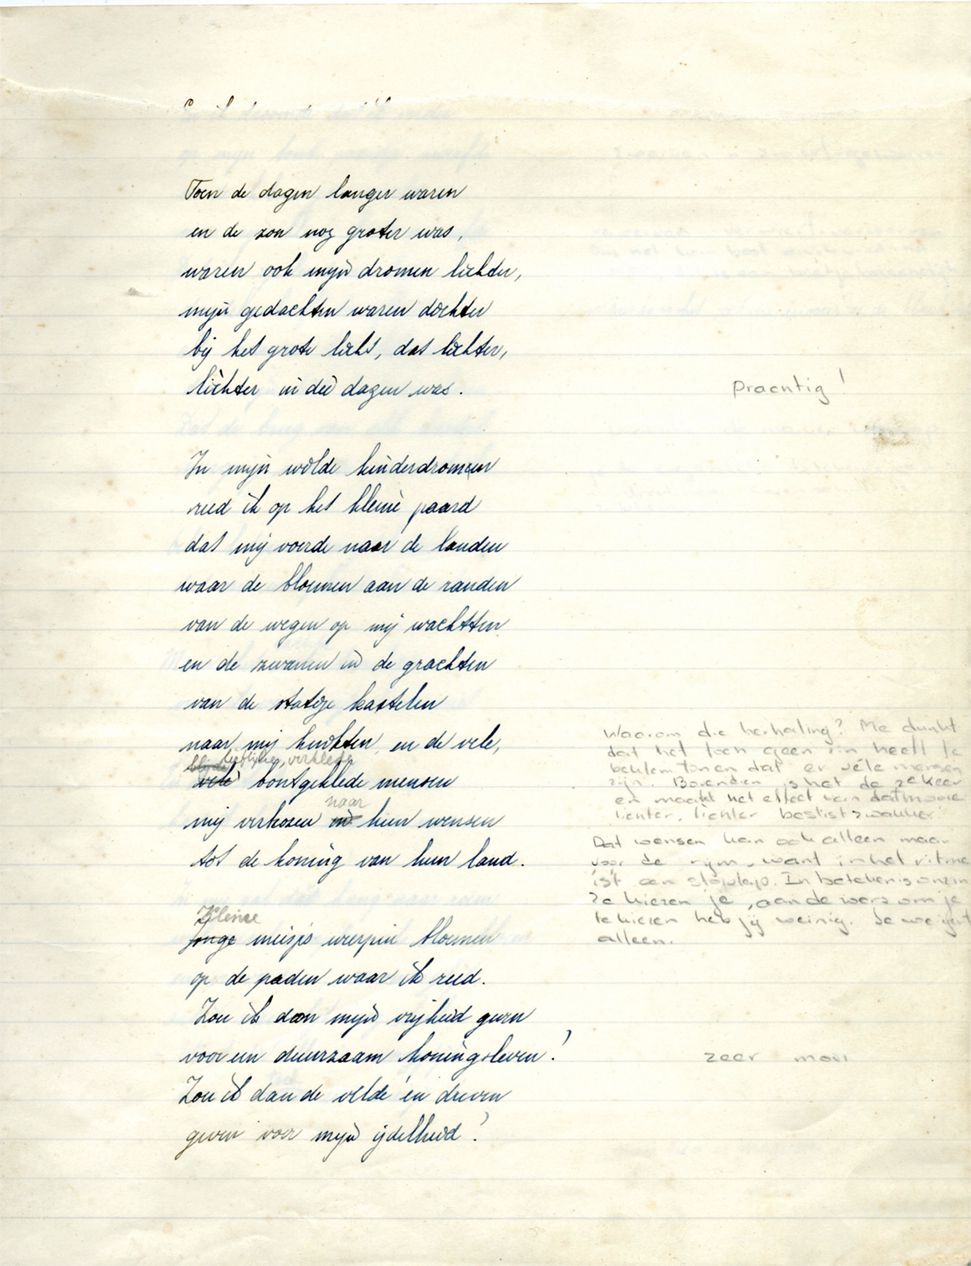 Toen de dagen langer waren
en de zon nog groter was,
waren ook mijn dromen lichter,
mijn gedachten waren dichter
bij het grote licht, dat lichter,
lichter in die dagen was.
Prachtig!
In mijn wilde kinderdromen
reed ik op het kleine paard
dat mij voerde naar de landen
waar de bloemen aan de randen
van de wegen op mij wachtten
en de zwanen in de grachten
van de statige kastelen
naar mij lachten en de vele,
vele bontgeklede mensen
mij verkozen naar hun wensen
tot de koning van hun land.
Waarom die herhaling? Me dunkt
dat het toch geen zin heeft te
beklemtonen dat er véle mensen
zijn. Bovendien is het de 2e keer
en maakt het effect van dat mooie
lichter, lichter beslist zwakker.
Dat wensen kan ook alleen maar
voor de rijm, want in het ritme
is't een stoplap. In betekenis onzin
Ze kiezen je, aan de wens om je
te kiezen heb jij weinig. Je weigert
alleen.
Kleine
Jonge meisjes wierpen bloemen
op de paden waar ik reed.
Zou ik dan mijn vrijheid geven
voor een duurzaam koningsleven?
zeer mooi
Zou ik dan de velde' en dreven
geven voor mijn ijdelheid?